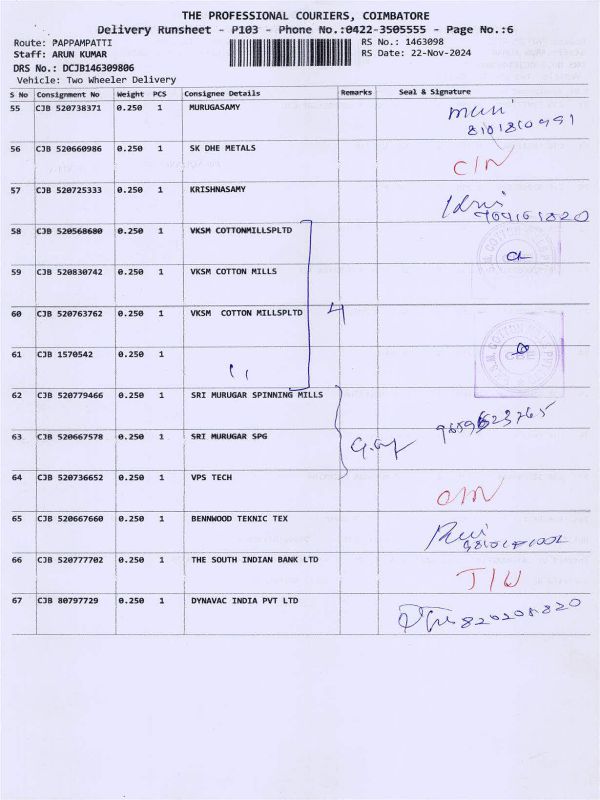 THE PROFESSIONAL COURIERS, COIMBATORE
Delivery Runsheet - P103 - Phone No.:0422-3505555 - Page No.:6
Route: PAPPAMPATTI RS No.: 1463098
Staff: ARUN KUMAR RS Date: 22-Nov-2024
DRS No.: DCJB146309806
Vehicle: Two Wheeler Delivery
S No Consignment No Weight PCS Consignee Details Remarks Seal & Signature
55 CJB 520738371 0.250 1 MURUGASAMY
56 CJB 520660986 0.250 1 SK DHE METALS
57 CJB 520725333 0.250 1 KRISHNASAMY
58 CJB 520568680 0.250 1 VKSM COTTONMILLSPLTD
59 CJB 520830742 0.250 1 VKSM COTTON MILLS
60 CJB 520763762 0.250 1 VKSM COTTON MILLSPLTD 4
61 CJB 1570542 0.250 1
62 CJB 520779466 0.250 1 SRI MURUGAR SPINNING MILLS
63 CJB 520667578 0.250 1 SRI MURUGAR SPG
64 CJB 520736652 0.250 1 VPS TECH
65 CJB 520667660 0.250 1 BENNWOOD TEKNIC TEX
66 CJB 520777702 0.250 1 THE SOUTH INDIAN BANK LTD
67 CJB 80797729 0.250 1 DYNAVAC INDIA PVT LTD